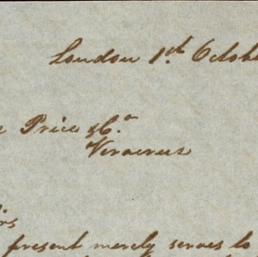 London 1st Octob
Price & Co.
Veracruz
present merely serves to